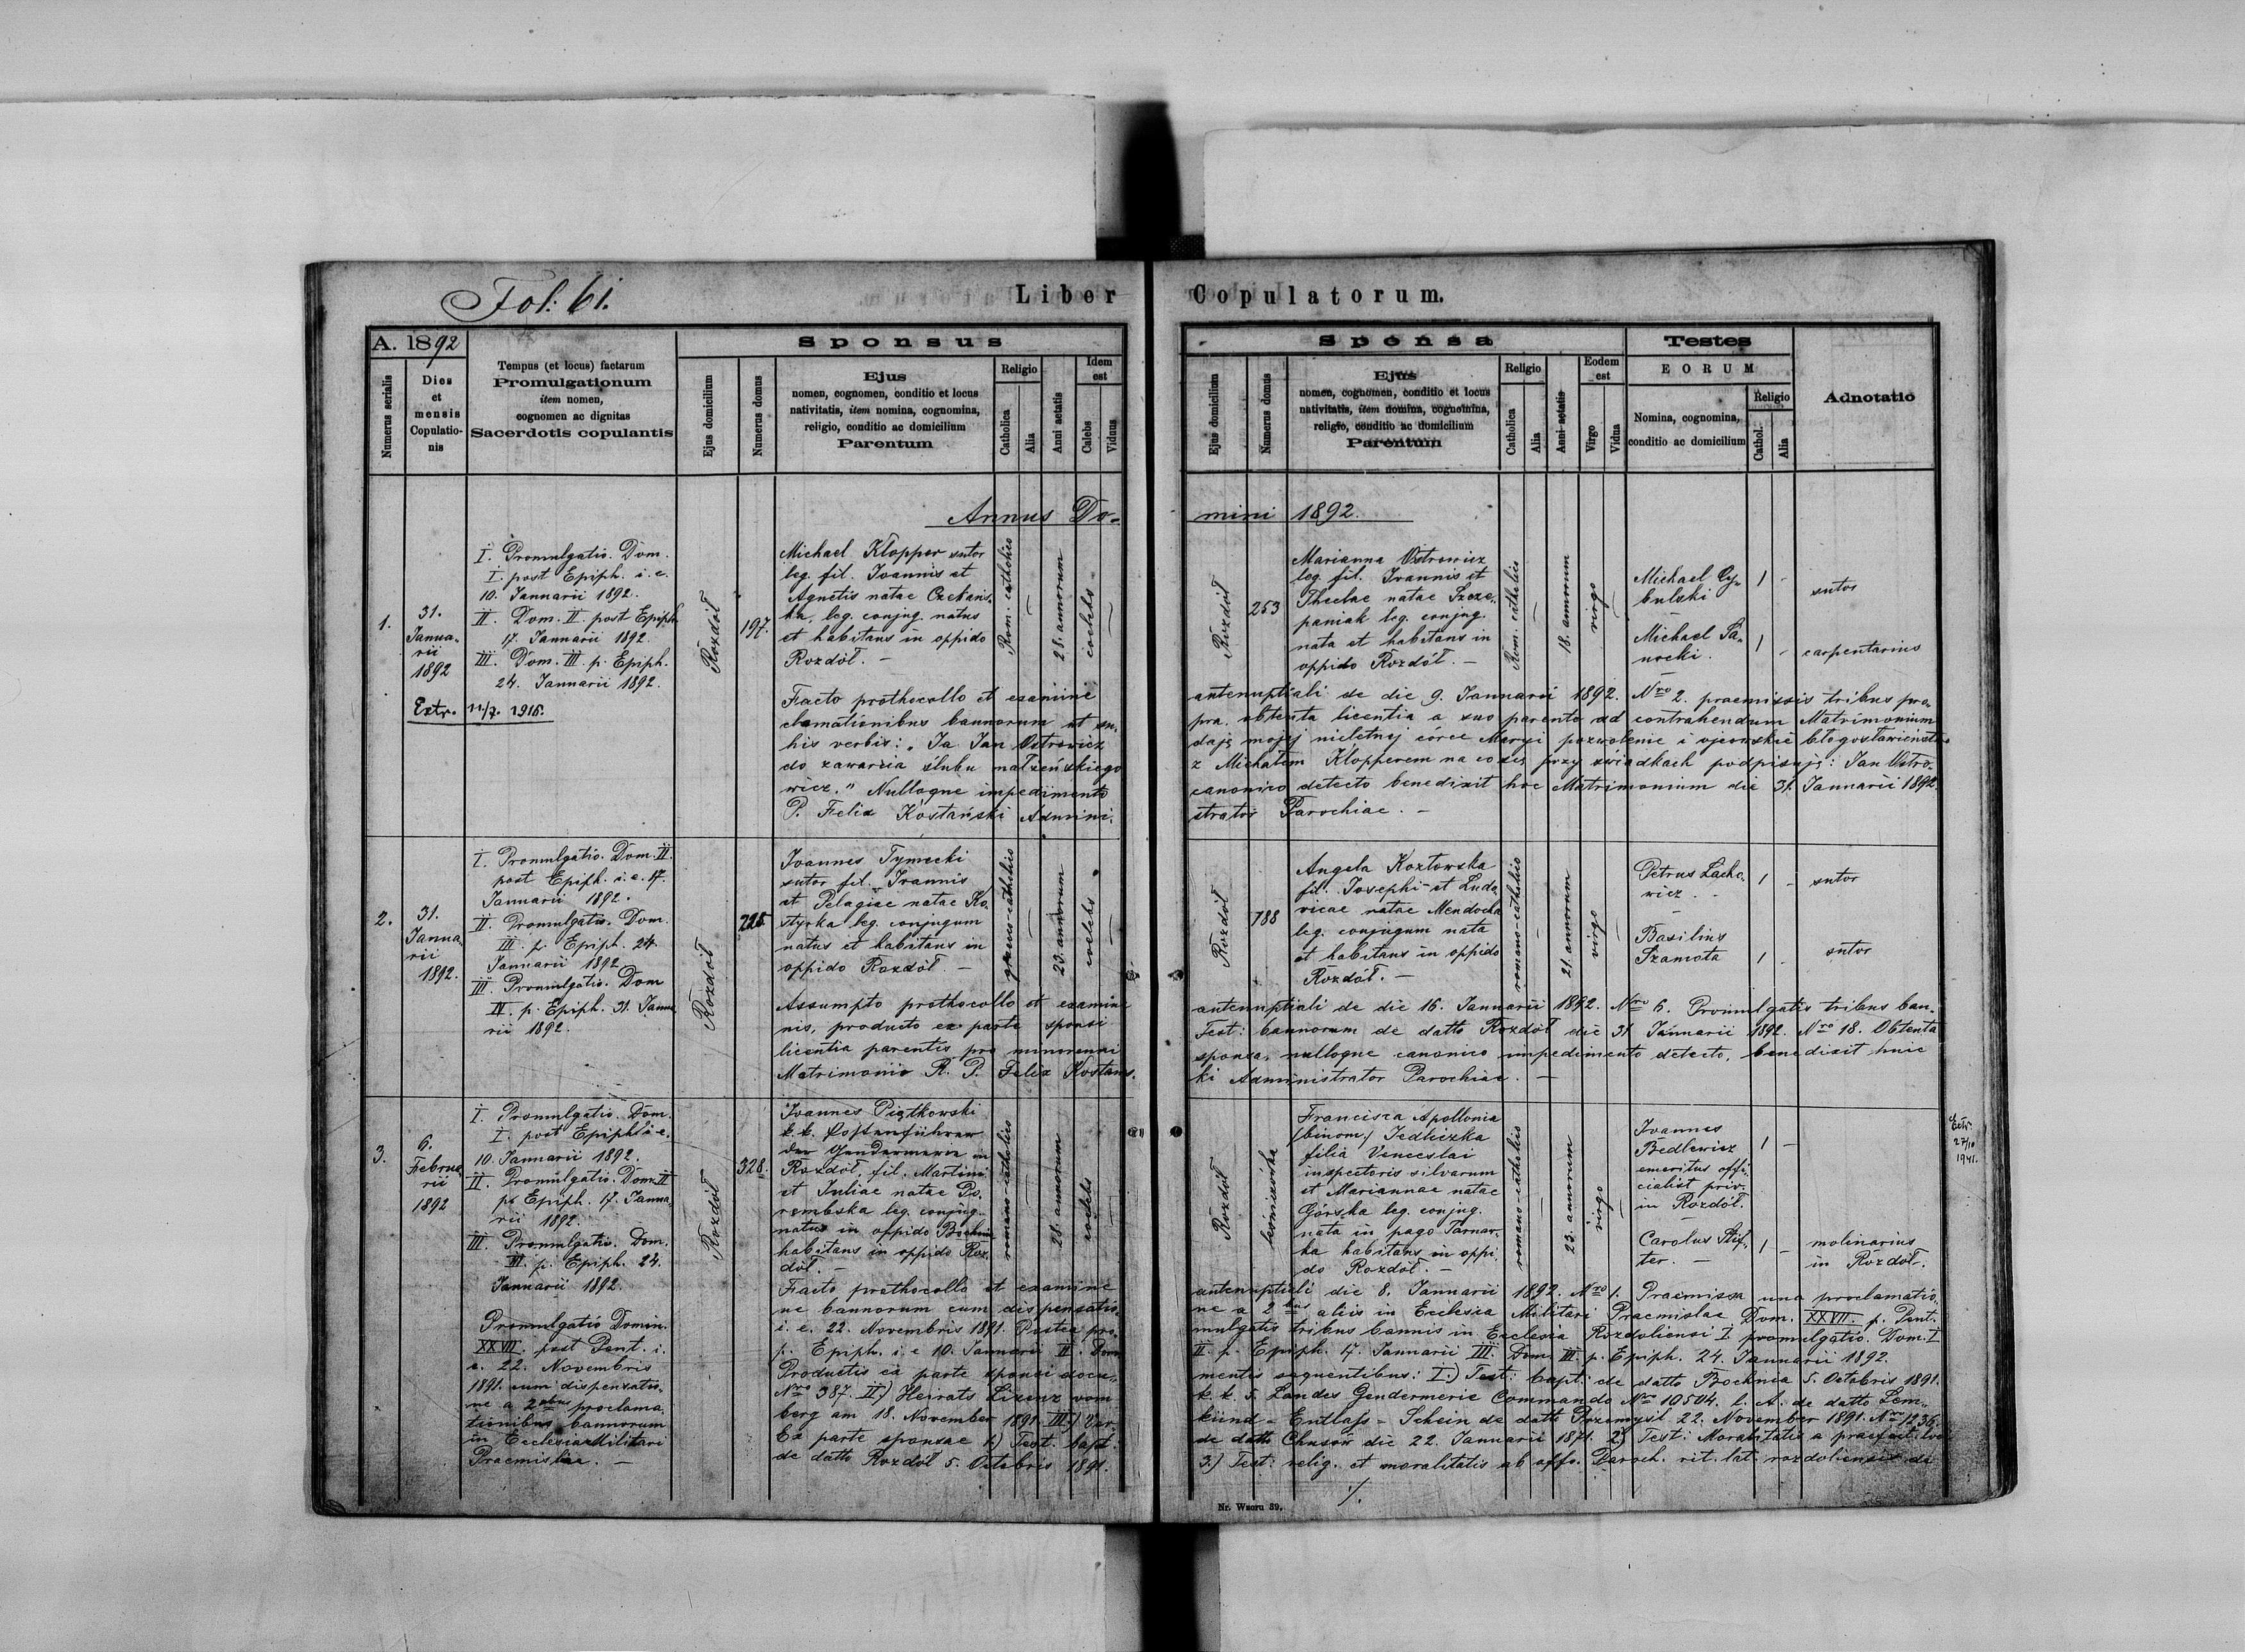 Fol: 61.
Liber Copulatorum.
A. 1892
Numerus serialis
Dies
et
mensis
Copulatio-
nis
Tempus (et locus) factarum
Promulgationum
item nomen,
cognomen ac dignitas
Sacerdotis copulantis
Sponsus
Ejus domicilium
Numerus domus
Ejus
nomen, cognomen, conditio et locus
nativitatis, item nomina, cognomina,
religio, conditio ac domicilium
Parentum
Religio
Catholica
Alia
Anni aetatis
Idem
est
Calebs
Viduus
Sponsa
Ejus domicilium
Numerus domus
Ejus
nomen, cognomen, conditio et locus
nativitatis, item nomina, cognomina,
religio, conditio ac domicilium
Parentum
Religio
Catholica
Alia
Anni aetatis
Eodem
est
Virgo
Vidua
Testes
EORUM
Nomina, cognomina,
conditio ac domicilium
Religio
Cathol.
Alia
Adnotatio
Annus Do-
mini 1892.
1.
31.
Janua-
rii
1892
Extr. 11/7. 1916.
I. Promulgatio. Dom.
I. post Epiph. i. e.
10. Januarii 1892.
II. Dom. II. post Epiph.
17. Januarii 1892.
III. Dom. III. p. Epiph.
24. Januarii 1892.
Rozdół
197.
Michael Klopper sutor
leg. fil. Joannis et
Agnetis natae Czekańs-
ka, leg. conjug. natus
et habitans in oppido
Rozdół. -
Rom. catholica
28. annorum
coelebs
Rozdół
253
Marianna Ostrowicz
leg. fil. Joannis et
Theclae natae Szcze-
paniak leg. conjug.
nata et habitans in
oppido Rozdół. -
Rom. catholica
18. annorum
virgo
Michael Cy-
bulski
1 -
sutor
Michael Sa-
nocki.
1 -
carpentarius
Facto prothocollo et examine antenuptiali de die 9. Januarii 1892. Nro 2. praemissis tribus pro-
clamationibus bannorum ut su-pra. obtenta licentia a suo parente ad contrahendum Matrimonium
his verbis: "Ja Jan Ostrowicz daję mojej nieletniej córce Maryi pozwolenie i ojcowskie błogosławieństwo
do zawarcia ślubu małżeńskiego z Michałem Klopperem na co się przy świadkach podpisuję: Jan Ostro-
wicz." Nulloque impedimento canonico detecto benedixit hoc Matrimonium die 31. Januarii 1892.
P. Felix Kostański Admini-strator Parochiae. -
2.
31.
Janua-
rii
1892.
I. Promulgatio. Dom. II.
post Epiph. i. e. 17.
Januarii 1892.
II. Promulgatio. Dom.
III. p. Epiph. 24.
Januarii 1892
III. Promulgatio. Dom
IV. p. Epiph. 31. Janua-
rii 1892.
Rozdół
225.
Joannes Tymecki
sutor fil. Joannis
et Pelagiae natae Ko-
styrka leg. conjugum
natus et habitans in
oppido Rozdół. -
graeco-catholica
23. annorum
coelebs
Rozdół
188
Angela Kozłowska
fil. Josephi et Ludo-
vicae natae Mendocha
leg. conjugum nata
et habitans in oppido
Rozdół. -
romano-catholica
21. annorum
virgo
Petrus Lacho-
wicz. -
1 -
sutor
Basilius
Szamota
1 -
sutor
Assumpto prothocollo et examine antenuptiali de die 16. Januarii 1892. Nro 6. Promulgatis tribus ban-
nis, producto ex parte sponsi Test: bannorum de datto Rozdół die 31. Januarii 1892. Nro 18. Obtenta
licentia parentis pro minorenni sponsa, nulloque canonico impedimento detecto, benedixit huic
Matrimonio R. P. Felix Kostańs-ki Administrator Parochiae. -
3.
6.
Februa-
rii
1892
I. Promulgatio. Dom.
I. post Epiph. i. e.
10. Januarii 1892.
II. Promulgatio. Dom. II
p. Epiph. 17. Janua-
rii 1892.
III. Promulgatio. Dom.
III. p. Epiph. 24.
Januarii 1892.
Promulgatio Domin.
XXVII. post Pent. i.
e. 22. Novembris
1891. cum dispensatio-
ne a 2abus proclama-
tionibus bannorum
in Ecclesia Militari
Praemisliae. -
Rozdół
328.
Joannes Piątkowski
k. k. Postenführer
der Gendarmerie in
Rozdół, fil. Martini
et Juliae natae Po-
rembska leg. conjug.
natus in oppido Bochnia
habitans in oppido Roz-
dół. -
romano-catholica
28. annorum
coelebs
Rozdół
leśniczówka
Francisca Apollonia
(binom.) Jedliczka
filia Venceslai
inspectoris silvarum
et Mariannae natae
Górska leg. conjug.
nata in pago Tarnaw-
ka habitans in oppi-
do Rozdół. -
romano-catholica
23. annorum
virgo
Joannes
Bedlewicz
emeritus offi-
cialist priv.
in Rozdół.
1 -
Carolus Stif-
ter. -
1 -
molinarius
in Rozdół.
Extr.
27/10
1941.
Facto prothocollo et examine antenuptiali die 8. Januarii 1892. Nro 1. Praemissa una proclamatio-
ne bannorum cum dispensatio-ne a 2bus aliis in Ecclesia Militari Praemislae Dom. XXVII. p. Pent.
i. e. 22. Novembris 1891. Postea pro-mulgatis tribus bannis in Ecclesia Rozdoliensi I. promulgatio. Dom. I
p. Epiph. i. e 10. Januarii II. Dom II p. Epiph. 17. Januarii III. Dom. III. p. Epiph. 24. Januarii 1892.
Productis ex parte sponsi docu-mentis sequentibus: I.) Test: bapt: de datto Bochnia 5. Octobris 1891.
Nro 387. II.) Heirats Lizenz vom k. k. 5. Landes Gendarmerie Commando Nro 10504. l. A. de datto Lem-
berg am 18. November 1891. III.) Ver-künd-Entlass-Schein de datto Przemyśl 22. November 1891. Nro 1236.
Ex parte sponsae 1.) Test. bapt: de datto Chusów die 22. Januarii 1871. 2.) Test: Moralitatis a praefect. loci
de datto Rozdół 5. Octobris 1891. 3.) Test: relig. et moralitatis ab offo. Paroch. rit. lat. rozdoliensis de
./.
Nr. Wzoru 39.